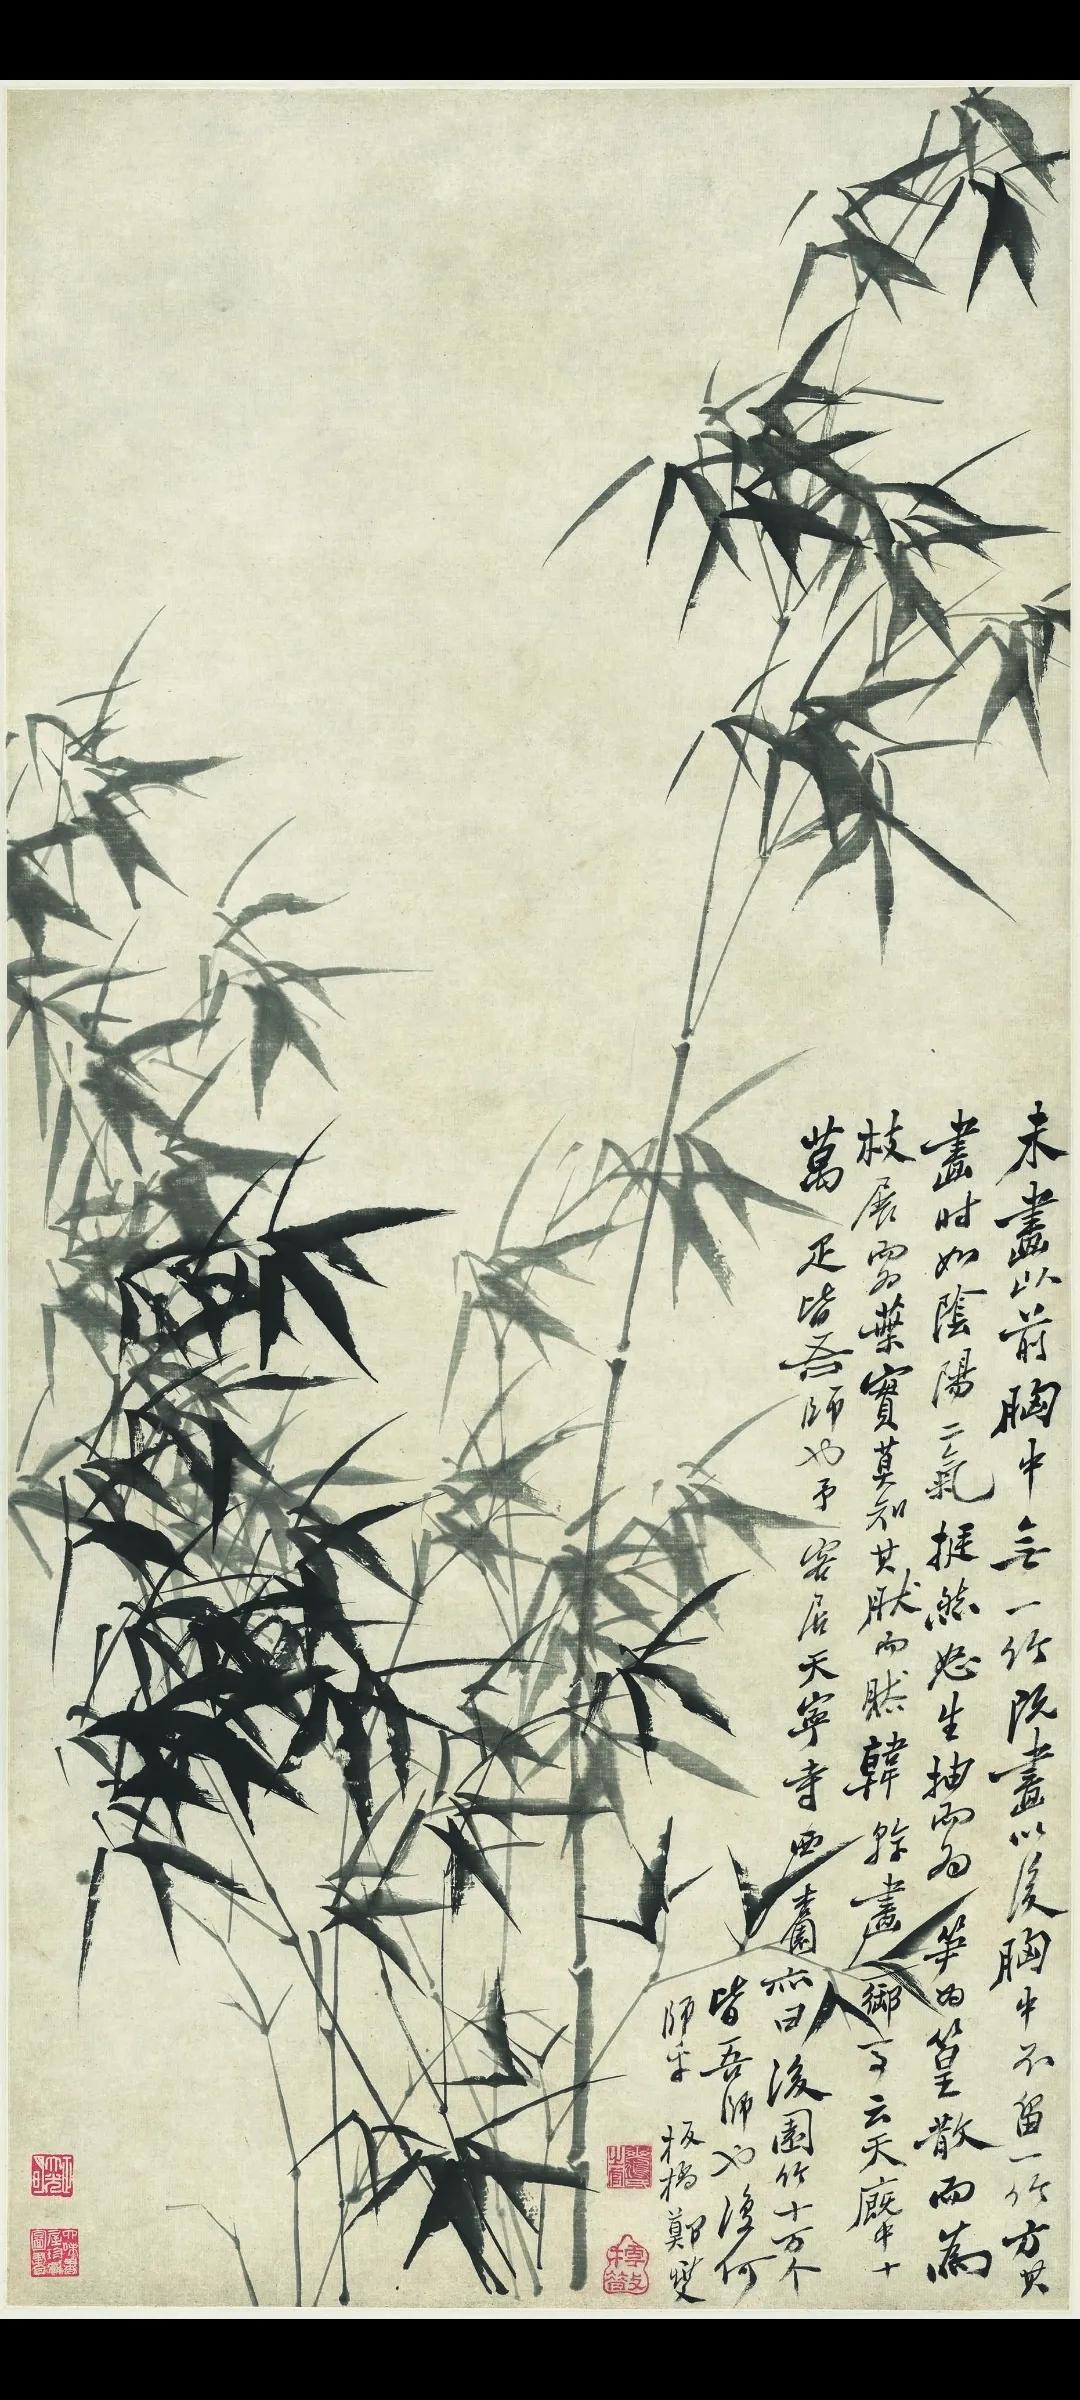 未畫以前胸中無一竹既畫以後胸中不留一竹方其
畫时如陰陽二氣挺然怒生抽而為笋為篁散而為
枝展而為葉實莫知其然而然韓幹畫御馬云天廄中十
萬疋皆吾師也予客居天寧寺西杏園亦曰後園竹十万个
皆吾師也復何
師乎 板橋鄭燮